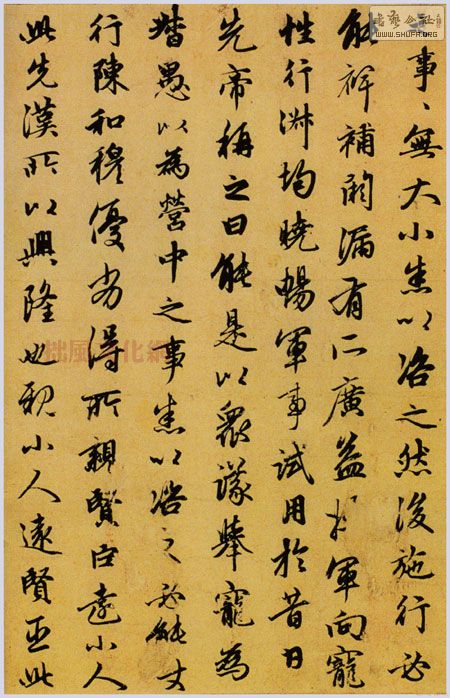 事、無大小悉以咨之然後施行必
能裨補闕漏有所廣益將軍向寵
性行淑均曉暢軍事試用於昔日
先帝稱之曰能是以眾議舉寵為
督愚以為營中之事悉以咨之必能使
行陳和穆優劣得所親賢臣遠小人
此先漢所以興隆也親小人遠賢臣此
書藝公社
WWW.SHUFA.ORG
拙風文化網